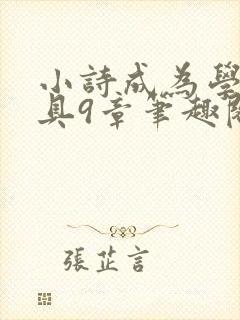 小詩成為學
具9章筆趣閱
張芷言